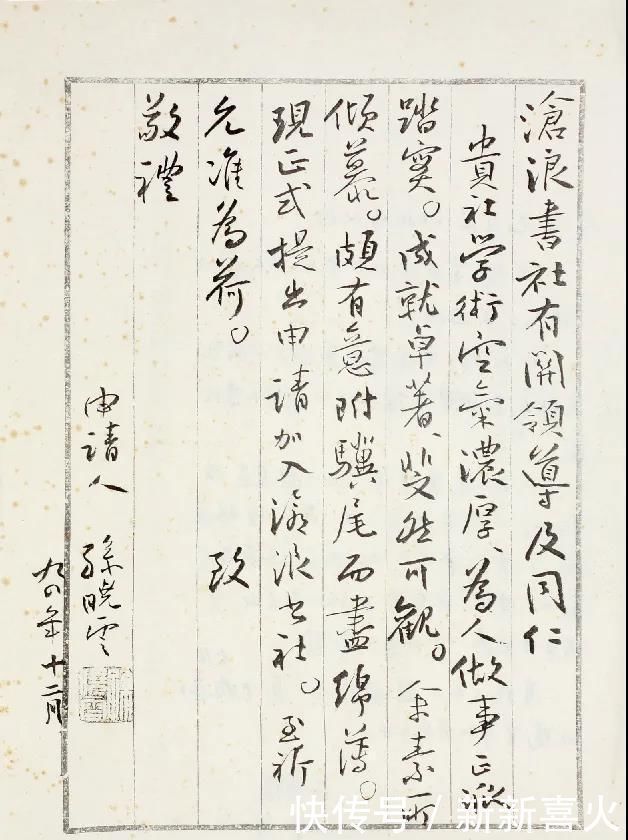 滄浪書社有關領導及同仁
貴社學術空氣濃厚、為人做事正派
踏實。成就卓著、斐然可觀。余素所
傾慕。頗有意附驥尾而盡綿薄。
現正式提出申請加入滄浪书社。至祈
允准為荷。 致
敬禮
申請人 孫曉雲
九四年十二月
快传号 / 新新喜火